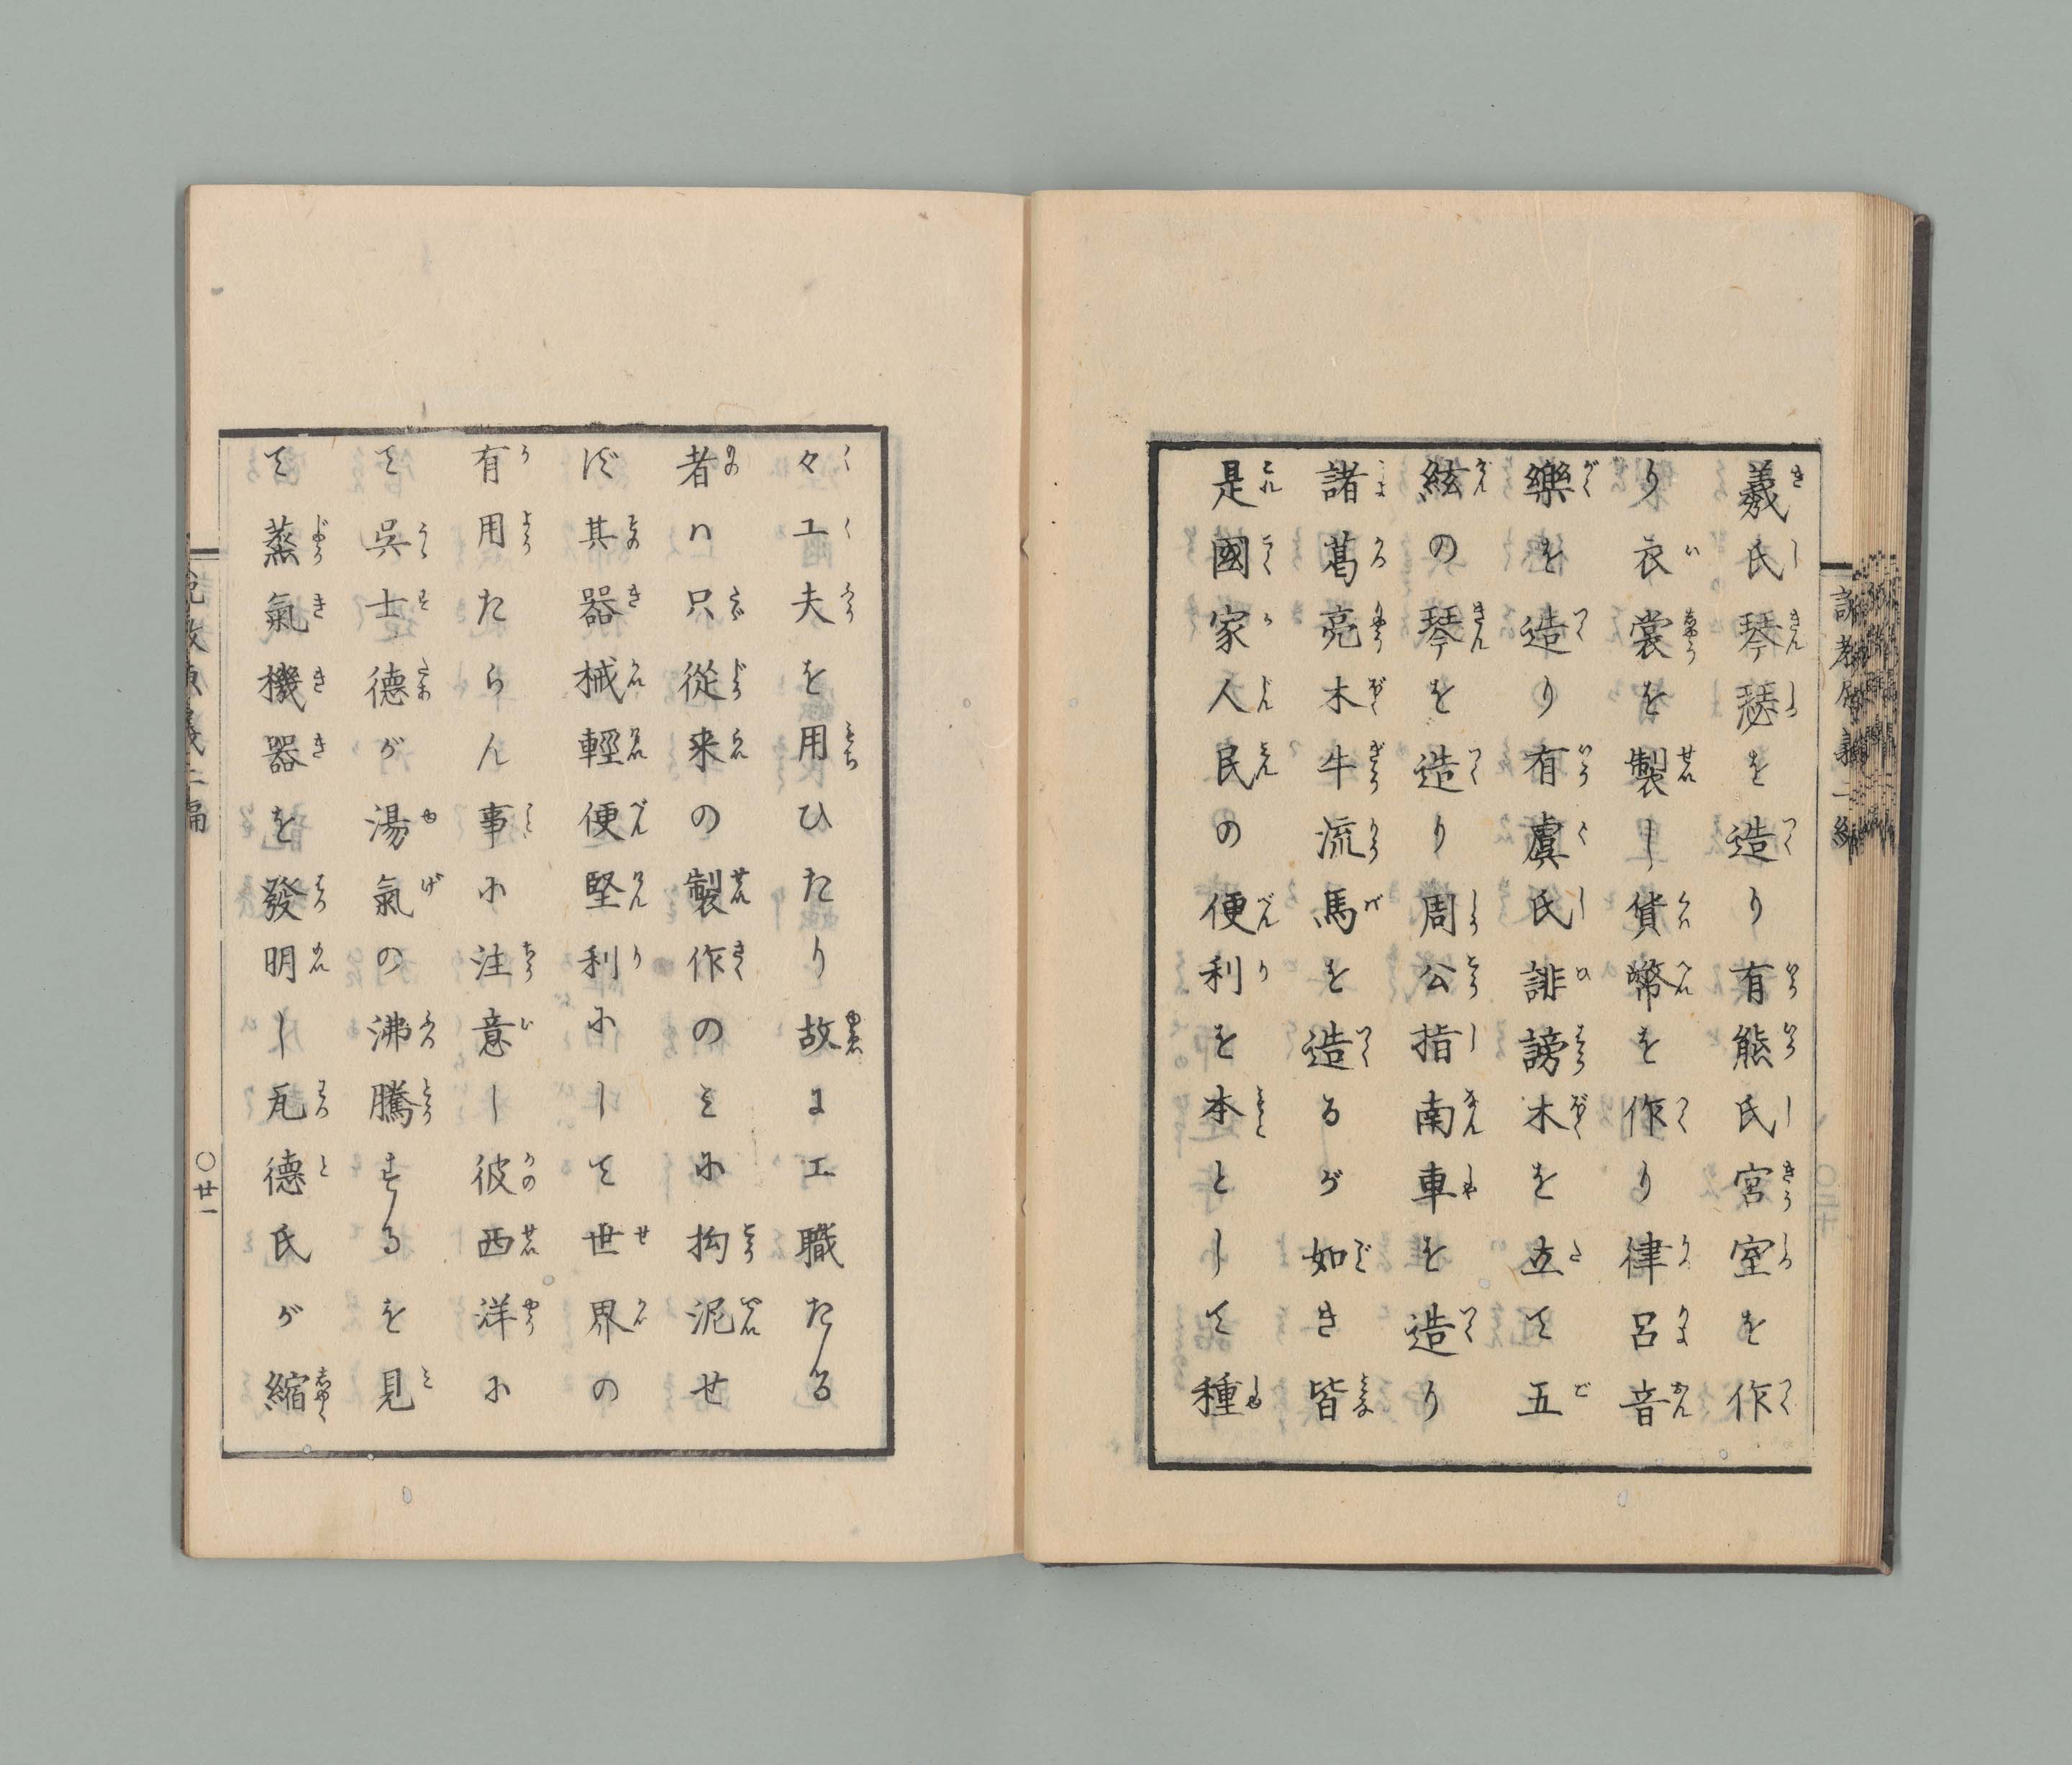 羲氏琴瑟を造り有熊氏宮室を作
り衣裳を製し貨幣を作り律呂音
樂を造り有虞氏誹謗木を立て五
絃の琴を造り周公指南車を造り
諸葛亮木牛流馬を造るが如き皆
是國家人民の便利を本として種
々工夫を用ひたり故に工職たる
者ハ只從来の製作のミに拘泥せ
ず其器械輕便堅利にして世界の
有用たらん事に注意し彼西洋に
て呉士德が湯氣の沸騰するを見
て蒸氣機器を發明し瓦德氏が縮
〇廿一